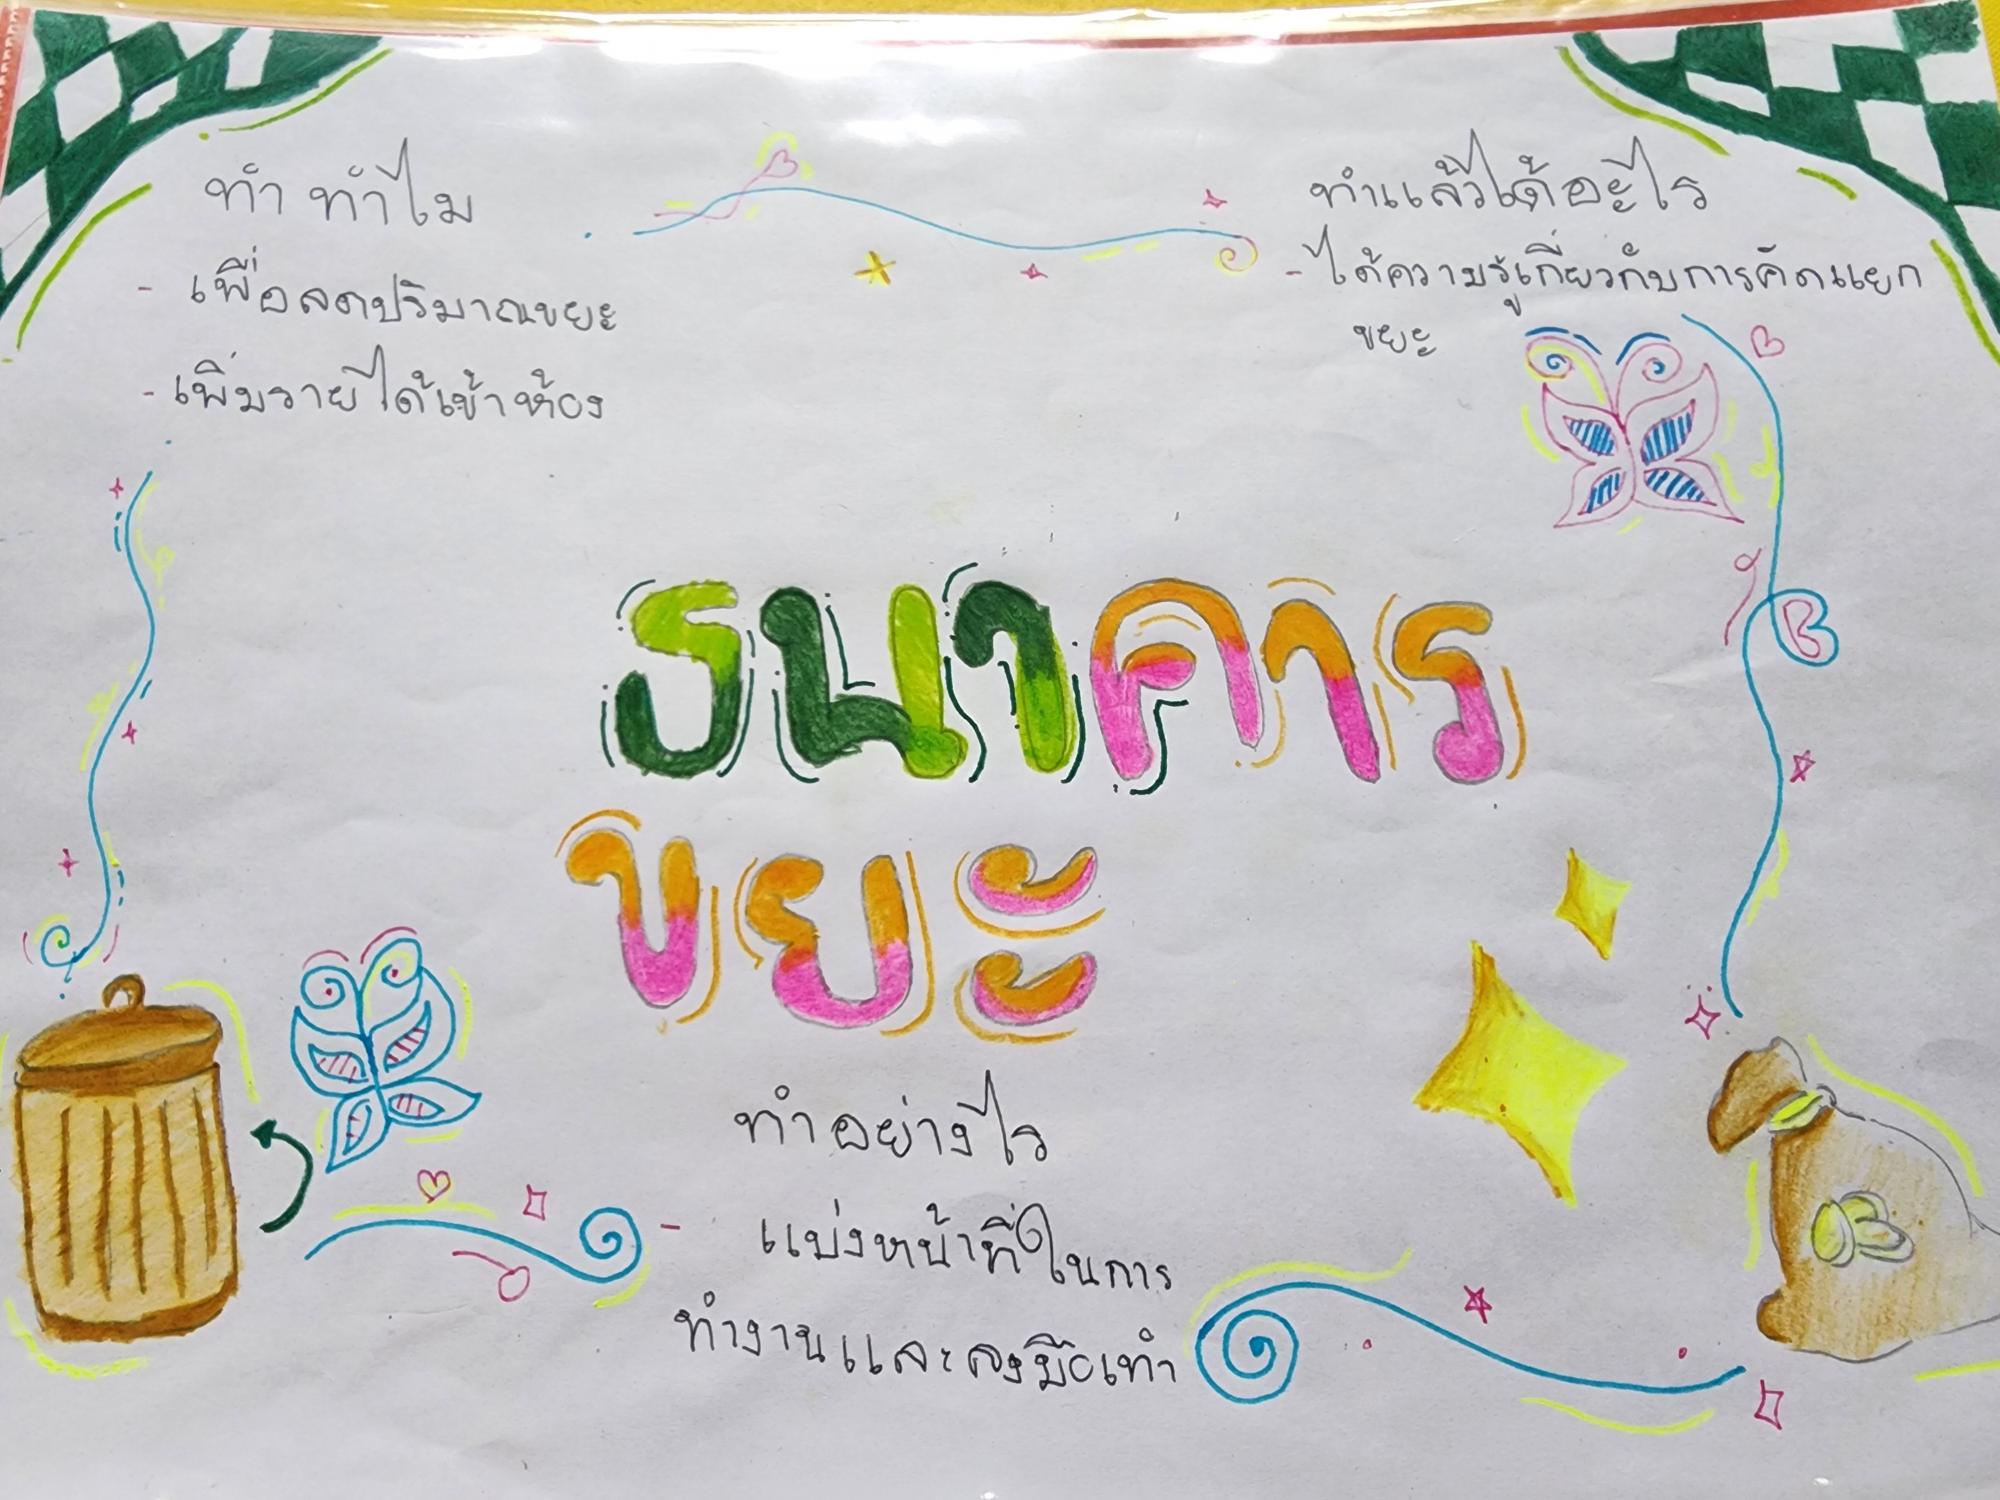 ทำ ทำไม
- เพื่อลดปริมาณขยะ
- เพิ่มรายได้เข้าห้อง
ทำแล้วได้อะไร
- ได้ความรู้เกี่ยวกับการคัดแยก
ขยะ
ธนาคาร
ขยะ
ทำอย่างไร
- แบ่งหน้าที่ในการ
ทำงานและลงมือทำ